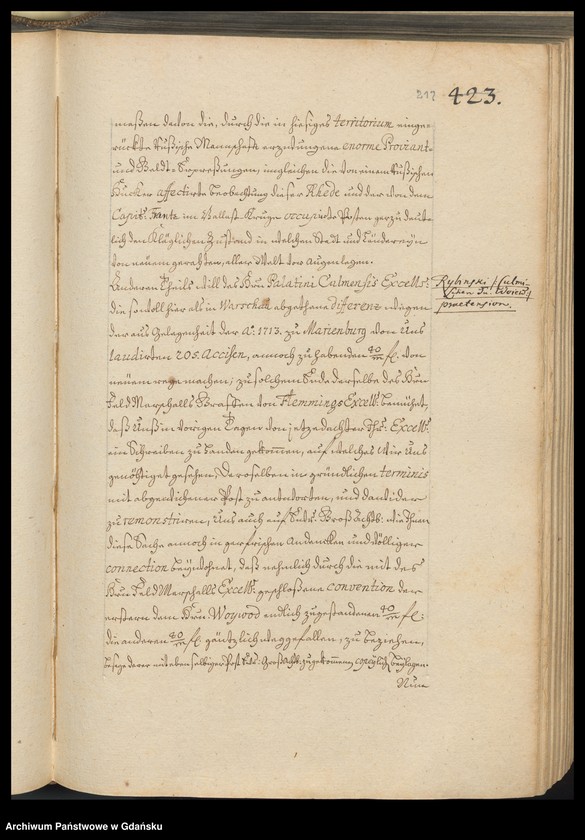 217 423.
maßen davon die, durch die in hiesiges territorium einge-
rückte Rußische Mannschafft erzwungene enorme Proviant
und Geldt Erpreßungen, imgleichen die von einem Rußischen
Hucker affectirte beobachtung dieser Rhede und der von dem
Capit. Frantz im Ballast Kruge occupirte Posten gar zu deut-
lich den Kläglichen Zustand in welchen Stadt und Länderey
von neuem gerahten, aller Welt vor Augen legen.
Anderen Theils will des Hrn. Palatini Culmensis Excell.
die so woll hier als in Warschau abgethane differenz wegen
der aus Gelegenheit der Ao. 1713. zu Marienburg von Uns
laudirten 205. Accisen, annoch zu habenden 40/m fl. von
neuem rege machen; zu solchem Ende derselbe des Hrn.
Feld Marschalls Graffen von Flemmings Excell. bemühet,
daß Unß in vorigen Tagen von jetzgedachter Ihr. Excell.
ein Schreiben zu handen gekommen, auf welches Wir Uns
genöhtiget gesehen, Deroselben in gründlichen terminis
mit abgewichener Post zu antworten, und dawider
zu remonstriren, Uns auch auf Eur. Groß Achtb. wie Ihnen
diese Sache annoch in gar frischen Andencken und völliger
connection beywohnet, daß nehmlich durch die mit des
Hrn. Feld Marschalls Excell. geschloßene convention der
ersteren dem Hrn. Woywod endlich zugestandenen 40/m fl:
die anderen 40/m fl. gäntzlich weggefallen, zu beziehen,
mit eben selbiger Post Eur. GroßAchtb. zugekommen, copeylich beylagen.
Nun
Rybinski /Culmi-
schen Hn. Woiew:/
praetension.
Archiwum Państwowe w Gdańsku